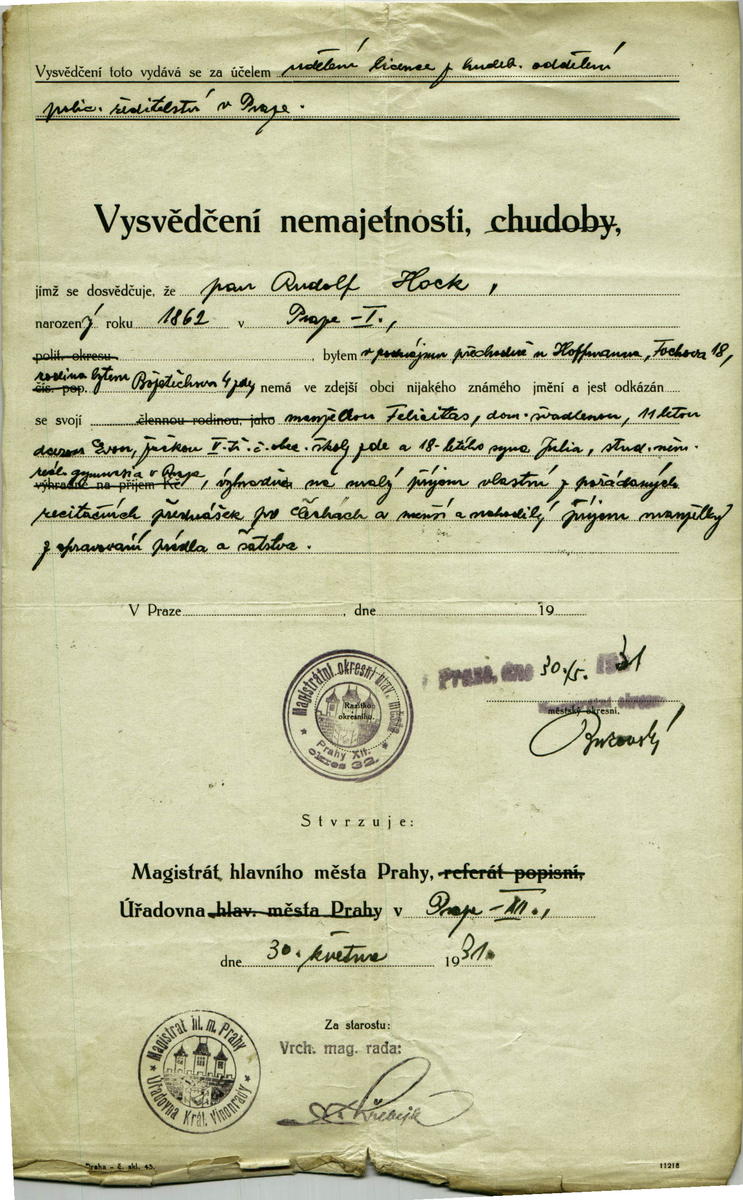 Vysvědčení toto vydává se za účelem udělení licence z hudeb. oddělení
polic. ředitelství v Praze.
Vysvědčení nemajetnosti, chudoby,
jímž se dosvědčuje, že pan Rudolf Hock,
narozený roku 1862 v Praze-I.,
polit. okresu bytem v podnájmu přechodně u Hoffmanna, Fochova 18,
rodina bytem
čís. pop. 4 zdy nemá ve zdejší obci nijakého známého jmění a jest odkázán
se svojí člennou rodinou, jako manželkou Felicitas, dom. švadlenou, 11 letou
dcerou Evou, žačkou V. tř. č. obec. školy zde a 18-letého syna Julia, stud. něm.
reál. gymnasia v Praze
výhradně na příjem Kč, výhradně na malý příjem vlastní z pořádaných
recitačních přednášek po Čechách a menší a nahodilý příjem manželky
z spravování prádla a šatstva.
V Praze dne 19
Praze, dne 30./5. 1931
Magistrátní okresní hlav. města
Prahy XII.
okres 32.
Razítko
okresního.
městský okresní.
Stvrzuje:
Magistrát hlavního města Prahy, referát popisní,
Úřadovna hlav. města Prahy v Praze-XII.,
dne 30. května 1931.
Magistrát hl. m. Prahy
Úřadovna Král. Vinohrady
Za starostu:
Vrch. mag. rada:
Praha – č. skl. 45.
11218